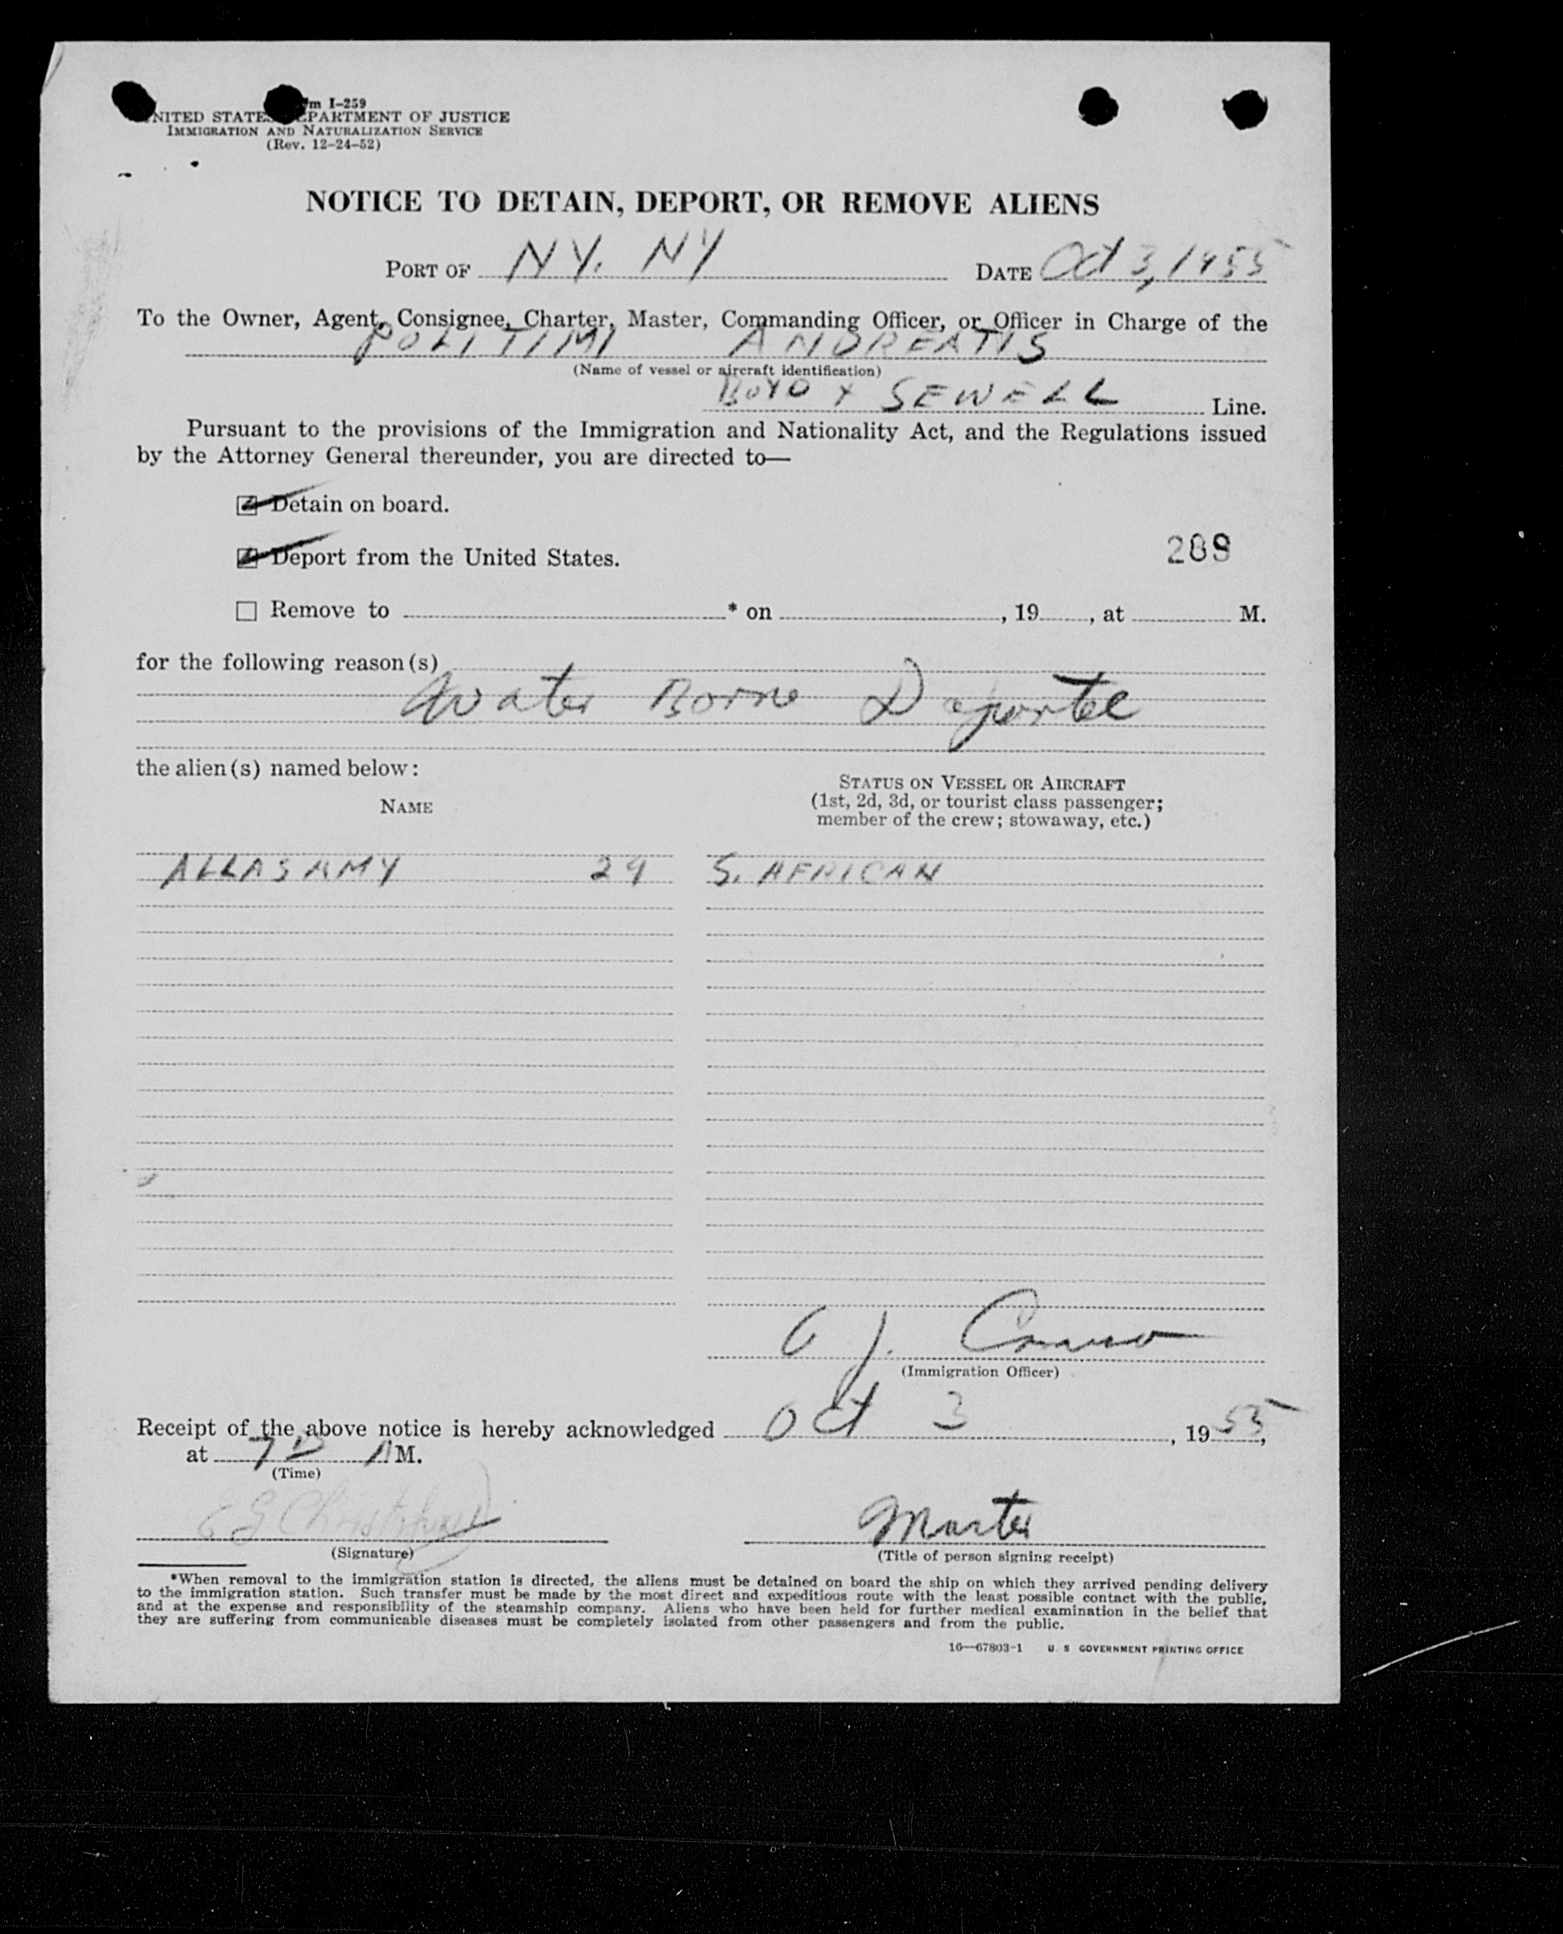 m I-259
UNITED STATES DEPARTMENT OF JUSTICE
IMMIGRATION AND NATURALIZATION SERVICE
(Rev. 12-24-52)
NOTICE TO DETAIN, DEPORT, OR REMOVE ALIENS
PORT OF NY. NY DATE Oct 3, 1955
To the Owner, Agent, Consignee, Charter, Master, Commanding Officer, or Officer in Charge of the
POLITIMI ANDREATIS
(Name of vessel or aircraft identification)
BOYD & SEWELL Line.
Pursuant to the provisions of the Immigration and Nationality Act, and the Regulations issued
by the Attorney General thereunder, you are directed to—
Detain on board.
Deport from the United States.
289
Remove to * on , 19 , at M.
for the following reason(s)
Water Borne Deportee
the alien(s) named below:
STATUS ON VESSEL OR AIRCRAFT
NAME
(1st, 2d, 3d, or tourist class passenger;
member of the crew; stowaway, etc.)
ALLASAMY 29 S. AFRICAN
J.
(Immigration Officer)
Receipt of the above notice is hereby acknowledged Oct 3, 1955,
at AM.
(Time)
Master
(Signature) (Title of person signing receipt)
*When removal to the immigration station is directed, the aliens must be detained on board the ship on which they arrived pending delivery
to the immigration station. Such transfer must be made by the most direct and expeditious route with the least possible contact with the public,
and at the expense and responsibility of the steamship company. Aliens who have been held for further medical examination in the belief that
they are suffering from communicable diseases must be completely isolated from other passengers and from the public.
16—67803-1 U. S. GOVERNMENT PRINTING OFFICE